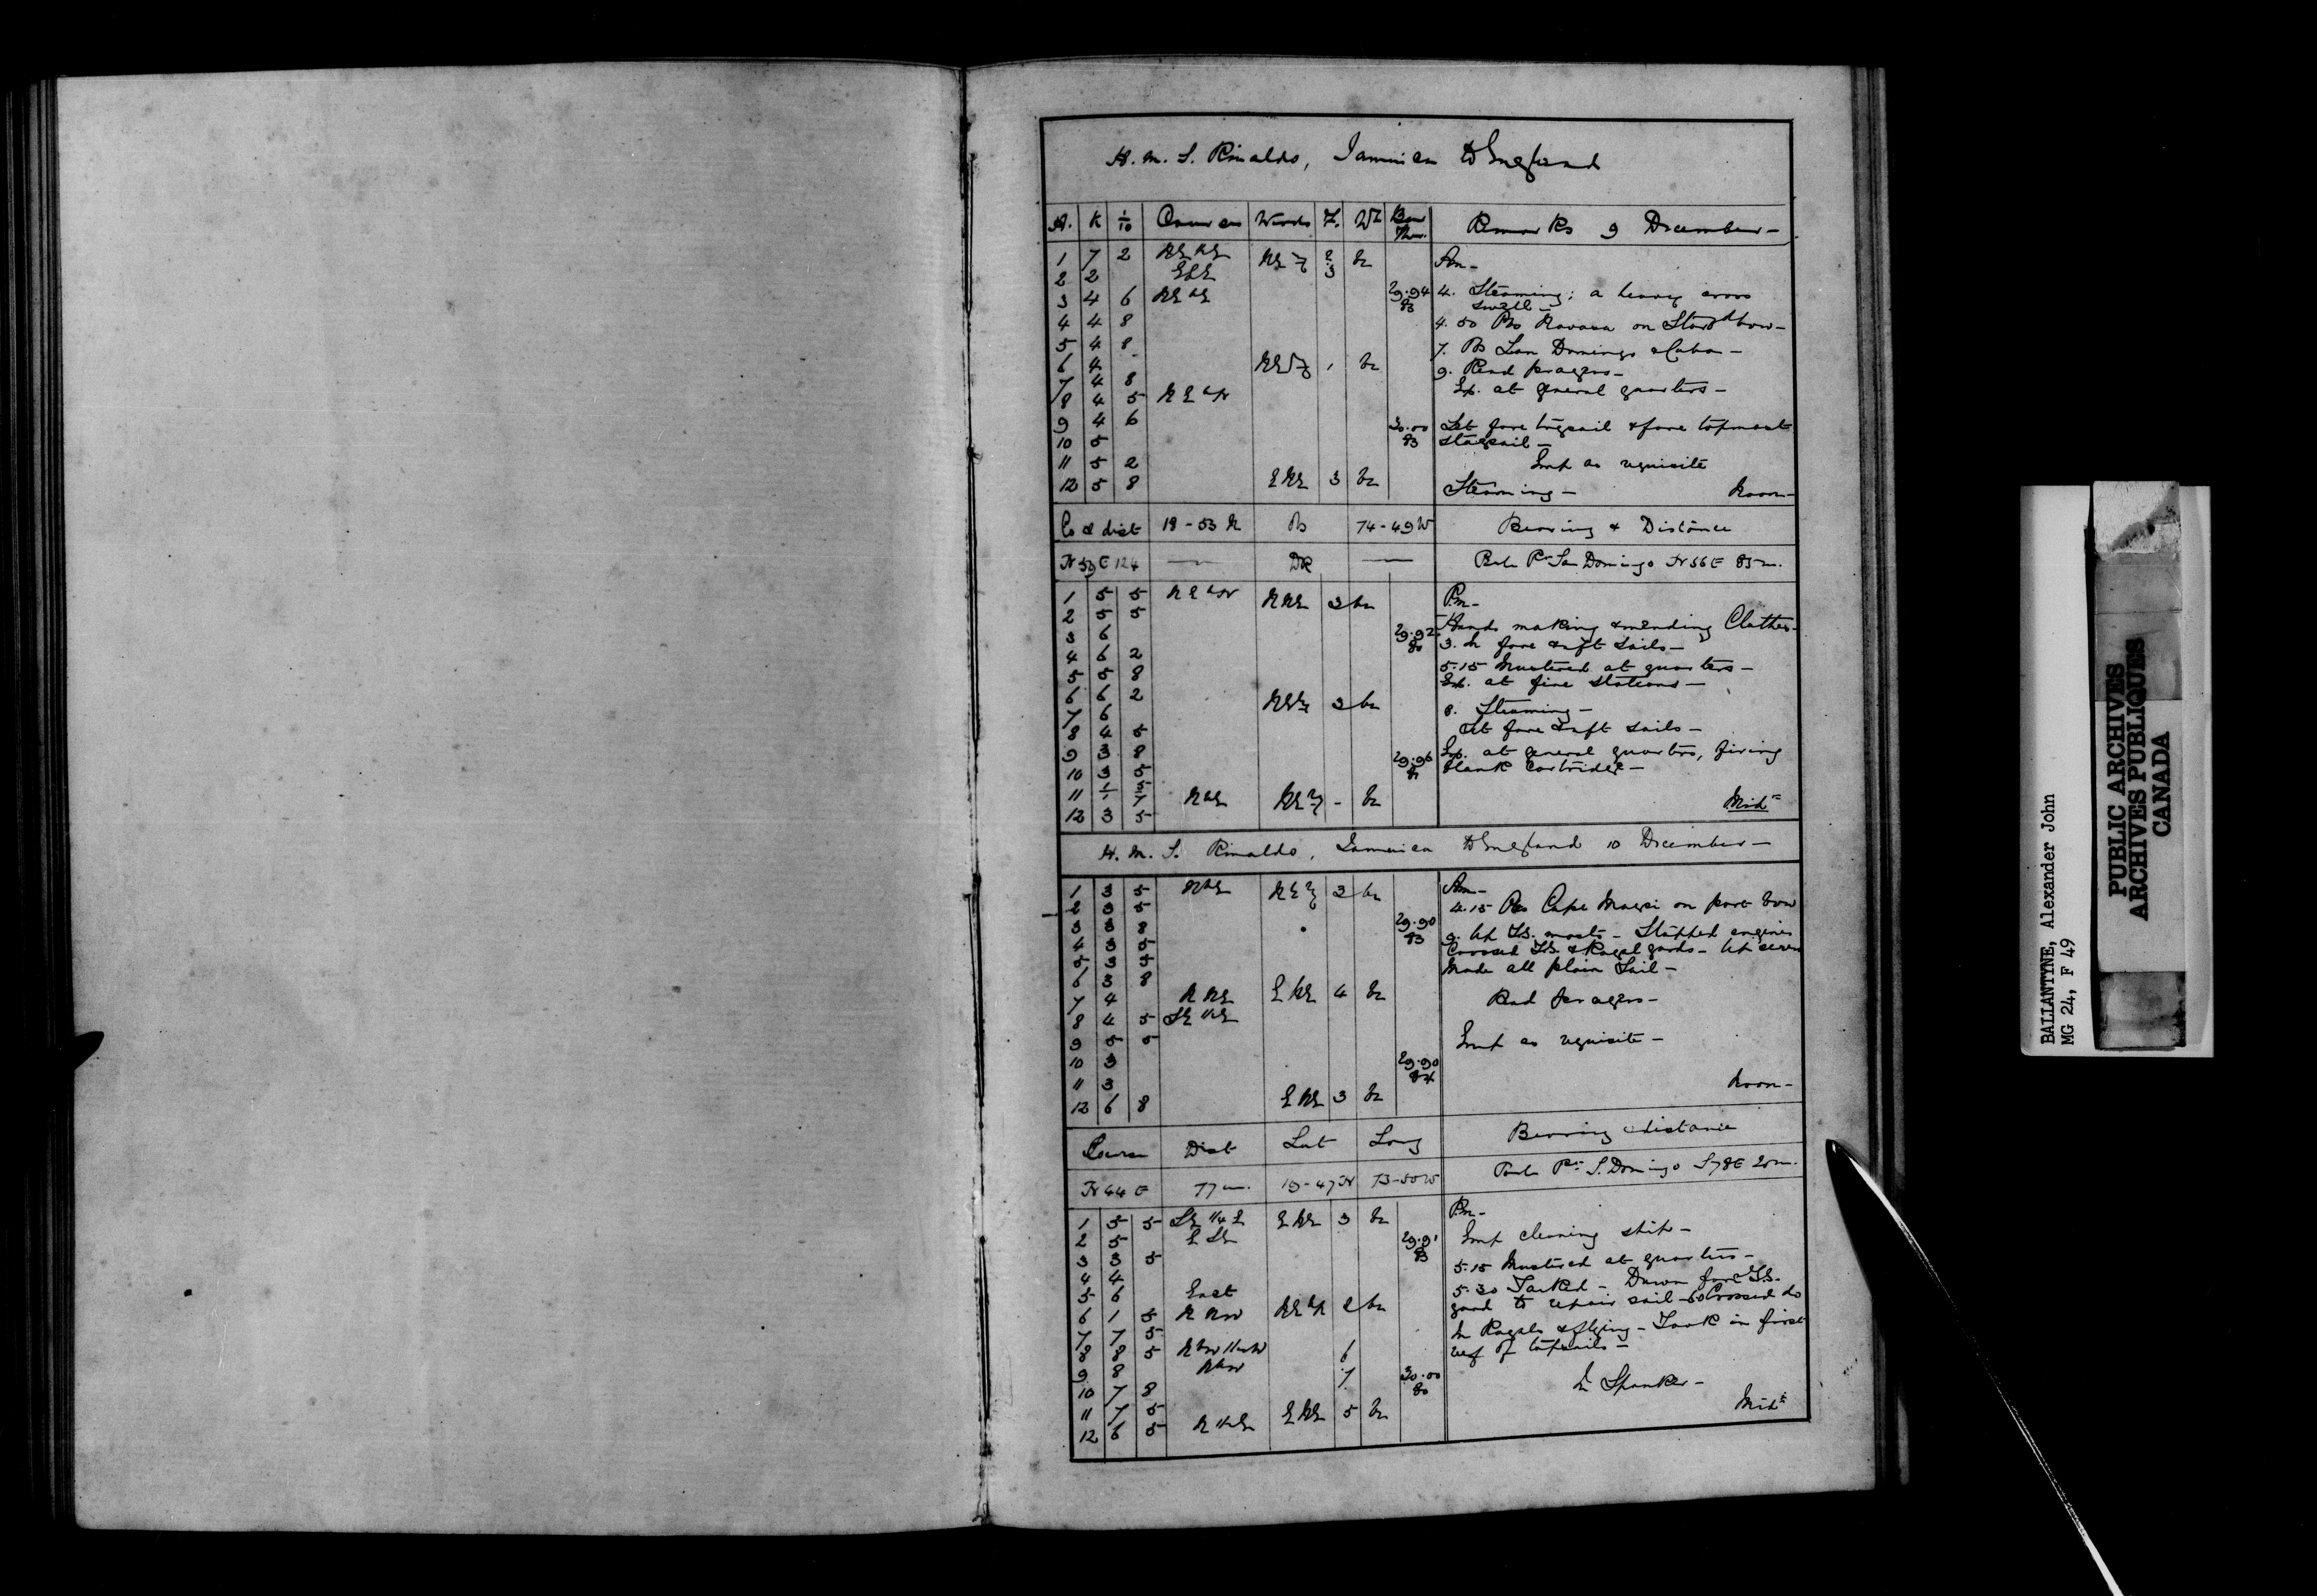 H. M. S. Rinaldo, Jamaica to England
H. K 1/10 Courses Winds F. Wr Bar Ther. Remarks 9 December -
1 7 2 NE bE bc Am -
2 2 ESE 3
3 4 6 NE bE 29.94 83 4. Steaming; a heavy cross
swell -
4 4 8 4.50 Obs Navasa on Starbd bow -
5 4 8 7. Obs San Domingo & Cuba -
6 4 1 bc 9. Read prayers -
7 4 8 Ex. at general quarters -
8 4 5 N E bN
9 4 6 30.00 83 Set fore trysail & fore topmast
10 5 staysail -
11 5 2 Emp as requisite
12 5 8 E NE 3 bc Steaming - Noon -
Co & dist 18-53 N Obs 74-49 W Bearing & Distance
N 59 E 124 — DR — San Domingo N 56 E 85 m.
1 5 5 N E bN N NE 3 bc P.m -
2 5 5 Hands making & mending Clothes -
3 6 29.92 80 3. In fore & aft sails -
4 6 2 5.15 Mustered at quarters -
5 5 8 Ex. at fire stations -
6 6 2 3 bc
7 6 8. Steaming -
8 4 5 Set fore & aft sails -
9 3 8 29.96 Ex. at general quarters, firing
10 3 5 blank cartridge -
11 NbE - bc
12 3 5 Midt
H. M. S. Rinaldo, Jamaica to England 10 December -
1 3 5 NbE 3 bc Am -
2 3 5 4.15 Obs Cape Maysi on port bow
3 3 8 29.90 83 9. Up TG. masts - Stopped engines
4 3 5 Crossed TG. & Royal yards - Up screw
5 3 5 Made all plain Sail -
6 3 8
7 4 N NE E NE 4 bc Read prayers -
8 4 5
9 5 5 Emp as requisite -
10 3 29.90 84
11 3 Noon -
12 6 8 E NE 3 bc
Course Dist Lat Long Bearing & distance
N 44 E 77 m. 19-47 N 73-50 W S. Domingo S 78 E 20 m.
1 5 5 E NE 3 bc P.m -
2 5 E SE 29.91 83 Emp cleaning ship -
3 3 5 5.15 Mustered at quarters -
4 4 5.30 Tacked - Down fore TG.
5 6 East yard to repair sail - 6.0 Crossed do
6 1 5 N NW 2 bc
7 7 5 In Royals & flying - Took in first
8 8 5 6 reef of topsails -
9 8 NbW 7 30.00 80
10 7 8 In Spanker -
11 7 5 E NE 5 bc Midt
12 6 5
BALLANTYNE, Alexander John
MG 24, F 49
PUBLIC ARCHIVES
ARCHIVES PUBLIQUES
CANADA